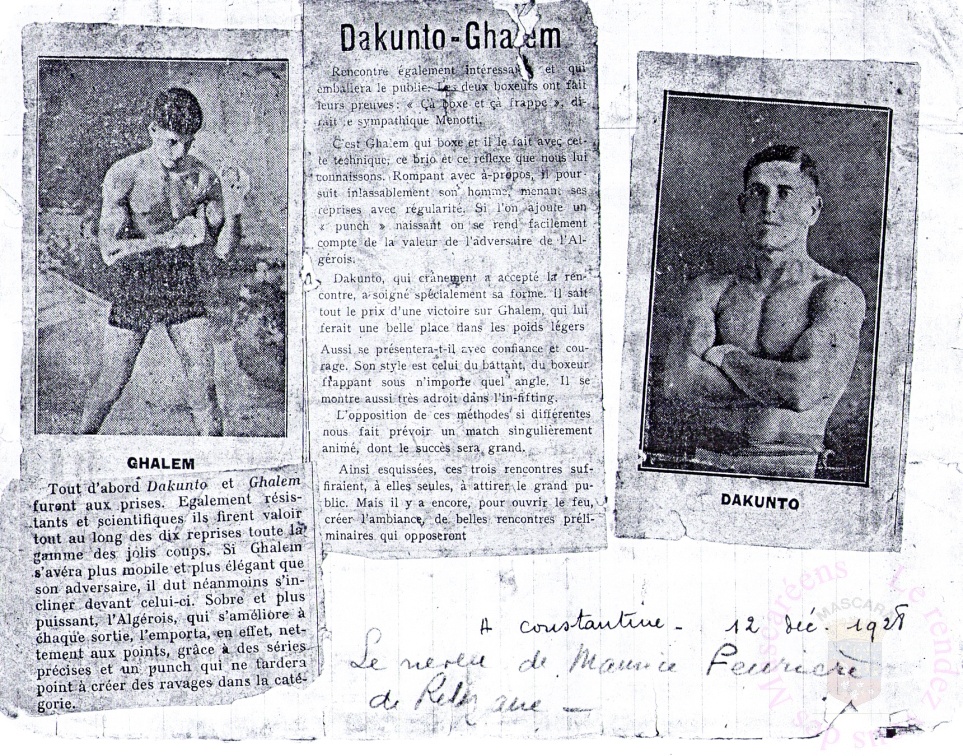 GHALEM
Tout d'abord Dakunto et Ghalem
furent aux prises. Egalement résis-
tants et scientifiques ils firent valoir
tout au long des dix reprises toute la
gamme des jolis coups. Si Ghalem
s'avéra plus mobile et plus élégant que
son adversaire, il dut néanmoins s'in-
cliner devant celui-ci. Sobre et plus
puissant, l'Algérois, qui s'améliore à
chaque sortie, l'emporta, en effet, net-
tement aux points, grâce à des séries
précises et un punch qui ne tardera
point à créer des ravages dans la caté-
gorie.
Dakunto-Ghalem
Rencontre également intéressante et qui
emballera le public. Les deux boxeurs ont fait
leurs preuves : « Çà boxe et çà frappe », di-
rait le sympathique Menotti.
C'est Ghalem qui boxe et il le fait avec cet-
te technique, ce brio et ce réflexe que nous lui
connaissons. Rompant avec à-propos, il pour-
suit inlassablement son homme, menant ses
reprises avec régularité. Si l'on ajoute un
« punch » naissant on se rend facilement
compte de la valeur de l'adversaire de l'Al-
gérois.
Dakunto, qui crânement a accepté la ren-
contre, a soigné spécialement sa forme. Il sait
tout le prix d'une victoire sur Ghalem, qui lui
ferait une belle place dans les poids légers
Aussi se présentera-t-il avec confiance et cou-
rage. Son style est celui du battant, du boxeur
frappant sous n'importe quel angle. Il se
montre aussi très adroit dans l'in-fifting.
L'opposition de ces méthodes si différentes
nous fait prévoir un match singulièrement
animé, dont le succès sera grand.
Ainsi esquissées, ces trois rencontres suf-
firaient, à elles seules, à attirer le grand pu-
blic. Mais il y a encore, pour ouvrir le feu,
créer l'ambiance, de belles rencontres préli-
minaires qui opposeront
DAKUNTO
A constantine - 12 déc. 1928
Le neveu de Maurice
de Relizane -
Le rendez
des Mascaréens
MASCARA